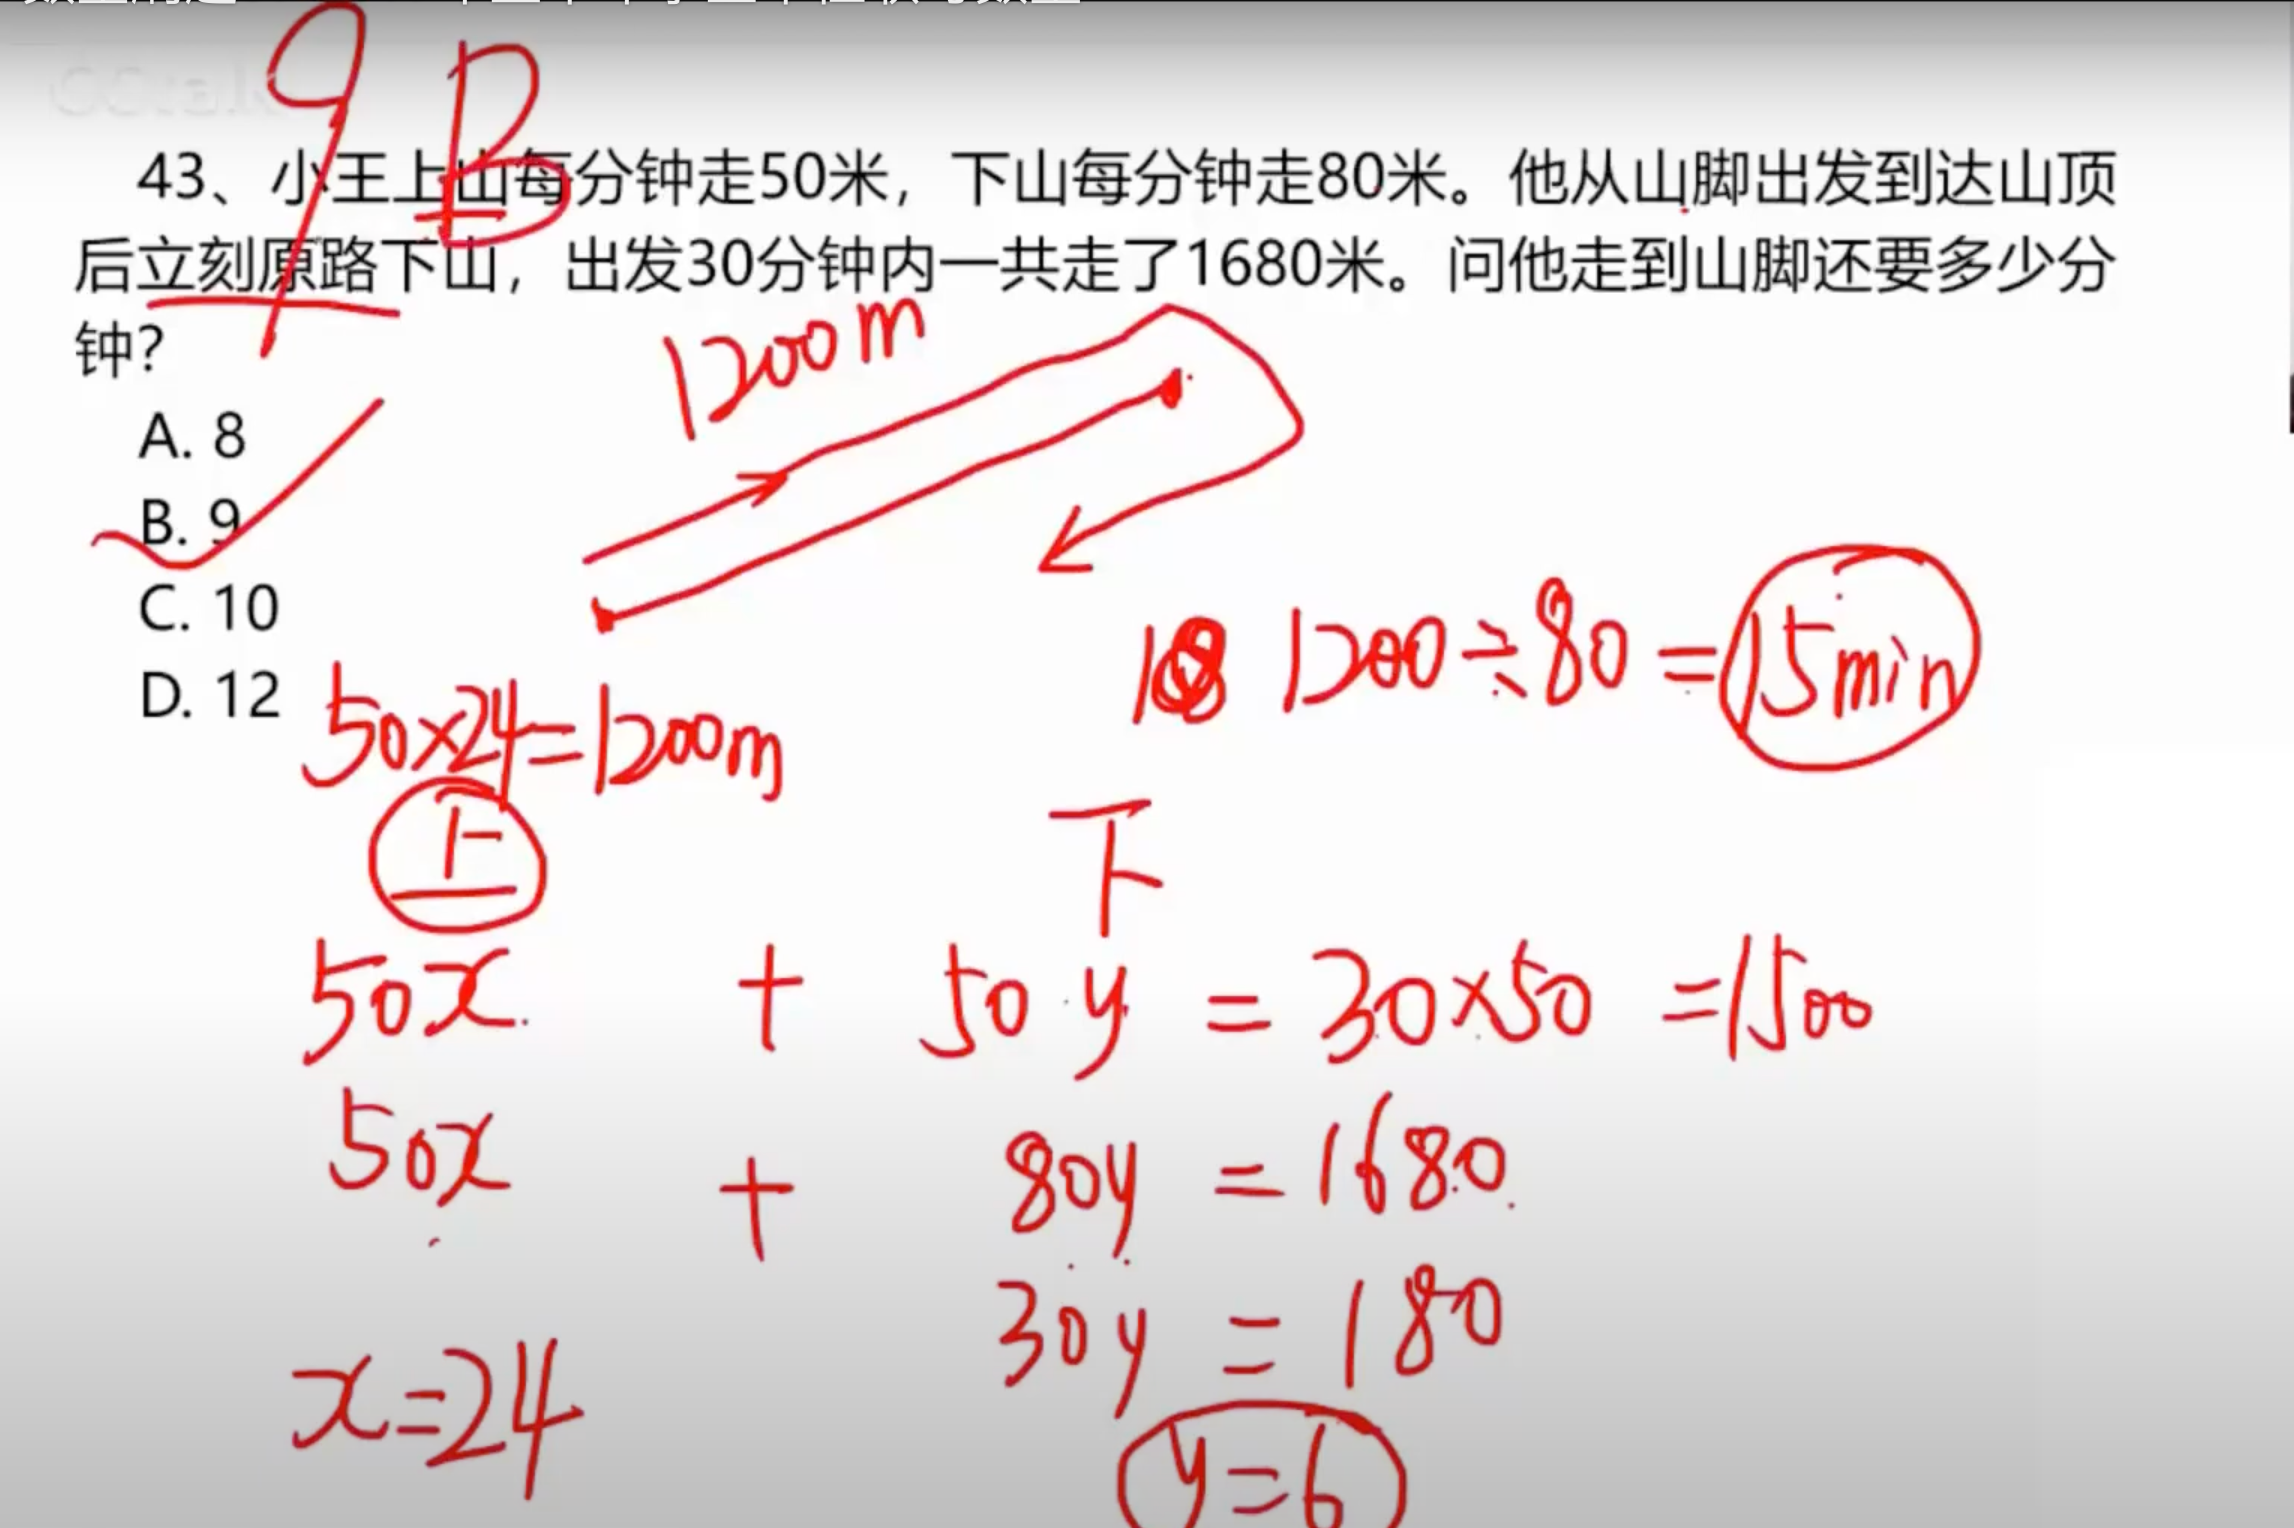 9 B
43、小王上山每分钟走50米，下山每分钟走80米。他从山脚出发到达山顶
后立刻原路下山，出发30分钟内一共走了1680米。问他走到山脚还要多少分
钟？
1200m
A. 8
B. 9
C. 10
D. 12
1200÷80=15min
50×24=1200m
上 下
50x + 50y = 30×50 =1500
50x + 80y = 1680
30y = 180
x=24
y=6